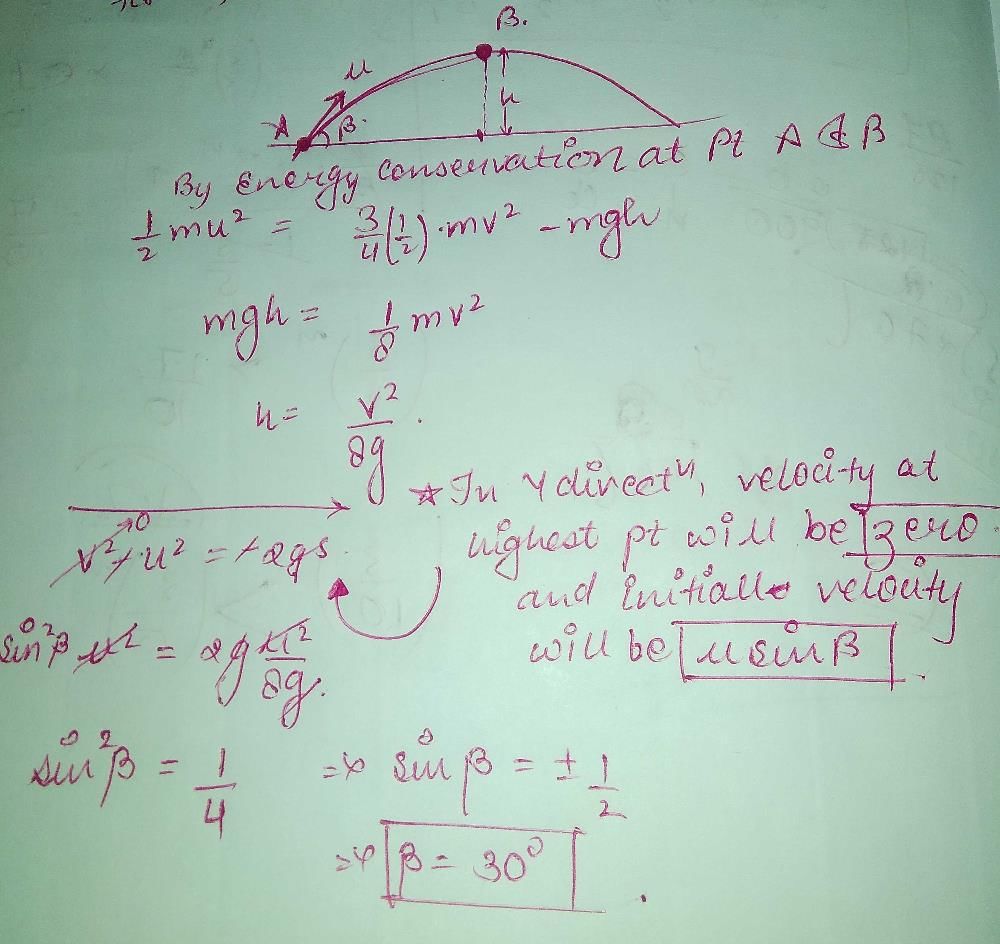 B.
u
A
β.
h
By Energy conservation at Pt A & B
1/2 mu² = 3/4(1/2)·mv² - mgh
mgh = 1/8 mv²
h = v²/8g .
☆ In Y directⁿ, velocity at
highest pt will be zero
and initial velocity
will be u sin β .
0
v² + u² = +2gs
sin²β u² = 2g u²/8g.
sin²β = 1/4 => sin β = ± 1/2
=> β = 30° .